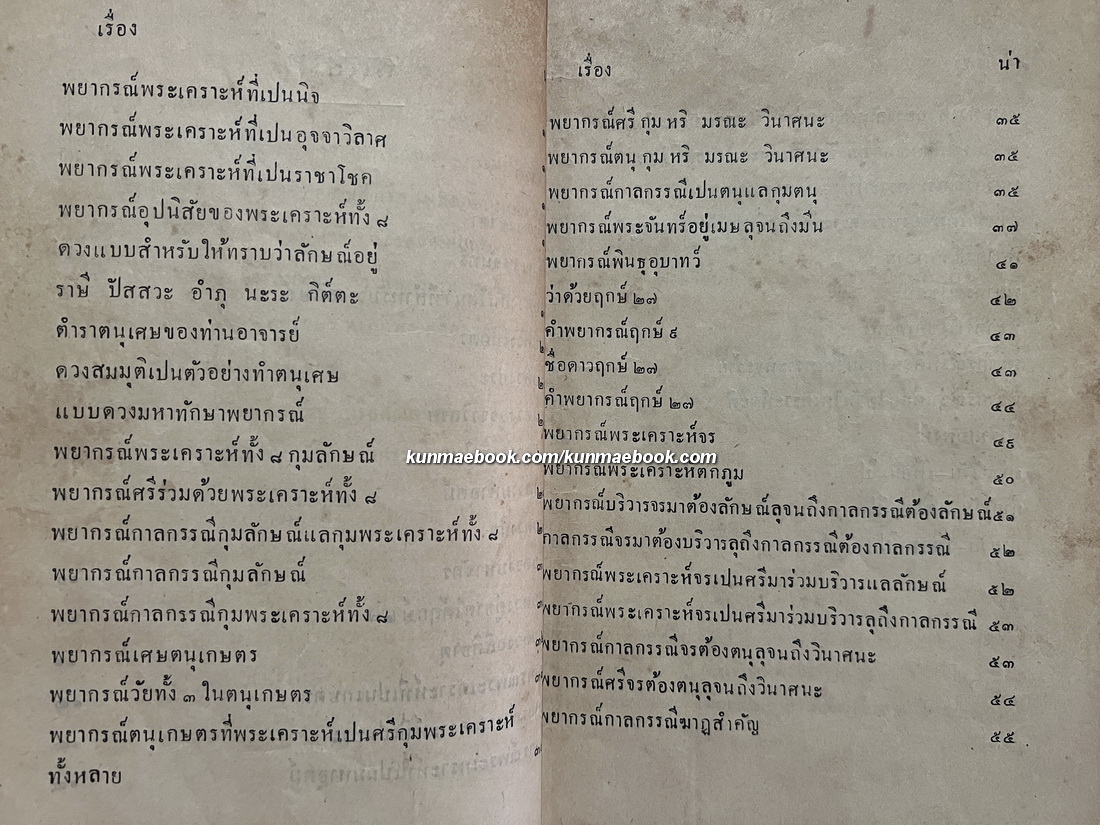 เรื่อง
พยากรณ์พระเคราะห์ที่เปนนิจ
พยากรณ์พระเคราะห์ที่เปนอุจจาวิลาศ
พยากรณ์พระเคราะห์ที่เปนราชาโชค
พยากรณ์อุปนิสัยของพระเคราะห์ทั้ง ๘
ดวงแบบสำหรับให้ทราบว่าลักษณ์อยู่
ราษี ปัสสวะ อำภุ นะระ กิต์ตะ
ตำราตนุเศษของท่านอาจารย์
ดวงสมมุติเปนตัวอย่างทำตนุเศษ
แบบดวงมหาทักษาพยากรณ์
พยากรณ์พระเคราะห์ทั้ง ๘ กุมลักษณ์
พยากรณ์ศรีร่วมด้วยพระเคราะห์ทั้ง ๘
พยากรณ์กาลกรรณีกุมลักษณ์แลกุมพระเคราะห์ทั้ง ๘
พยากรณ์กาลกรรณีกุมลักษณ์
พยากรณ์กาลกรรณีกุมพระเคราะห์ทั้ง ๘
พยากรณ์เศษตนุเกษตร
พยากรณ์วัยทั้ง ๓ ในตนุเกษตร
พยากรณ์ตนุเกษตรที่พระเคราะห์เปนศรีกุมพระเคราะห์
ทั้งหลาย
เรื่อง น่า
พยากรณ์ศรี กุม หริ มรณะ วินาศนะ ๓๕
พยากรณ์ตนุ กุม หริ มรณะ วินาศนะ ๓๕
พยากรณ์กาลกรรณีเปนตนุแลกุมตนุ ๓๕
พยากรณ์พระจันทร์อยู่เมษลุจนถึงมีน ๓๗
พยากรณ์พินธุอุบาทว์ ๔๑
ว่าด้วยฤกษ์ ๒๗ ๔๒
คำพยากรณ์ฤกษ์ ๙ ๔๓
ชื่อดาวฤกษ์ ๒๗ ๔๓
คำพยากรณ์ฤกษ์ ๒๗ ๔๔
พยากรณ์พระเคราะห์จร ๔๙
kunmaebook.com/kunmaebook.com
พยากรณ์พระเคราะห์ตกภูม ๕๐
พยากรณ์บริวารจรมาต้องลักษณ์ลุจนถึงกาลกรรณีต้องลักษณ์ ๕๑
กาลกรรณีจรมาต้องบริวารลุถึงกาลกรรณีต้องกาลกรรณี ๕๒
พยากรณ์พระเคราะห์จรเปนศรีมาร่วมบริวารแลลักษณ์ ๕๒
พยากรณ์พระเคราะห์จรเปนศรีมาร่วมบริวารลุถึงกาลกรรณี ๕๓
พยากรณ์กาลกรรณีจรต้องตนุลุจนถึงวินาศนะ ๕๓
พยากรณ์ศรีจรต้องตนุลุจนถึงวินาศนะ ๕๔
พยากรณ์กาลกรรณีฆาฏสำคัญ ๕๕